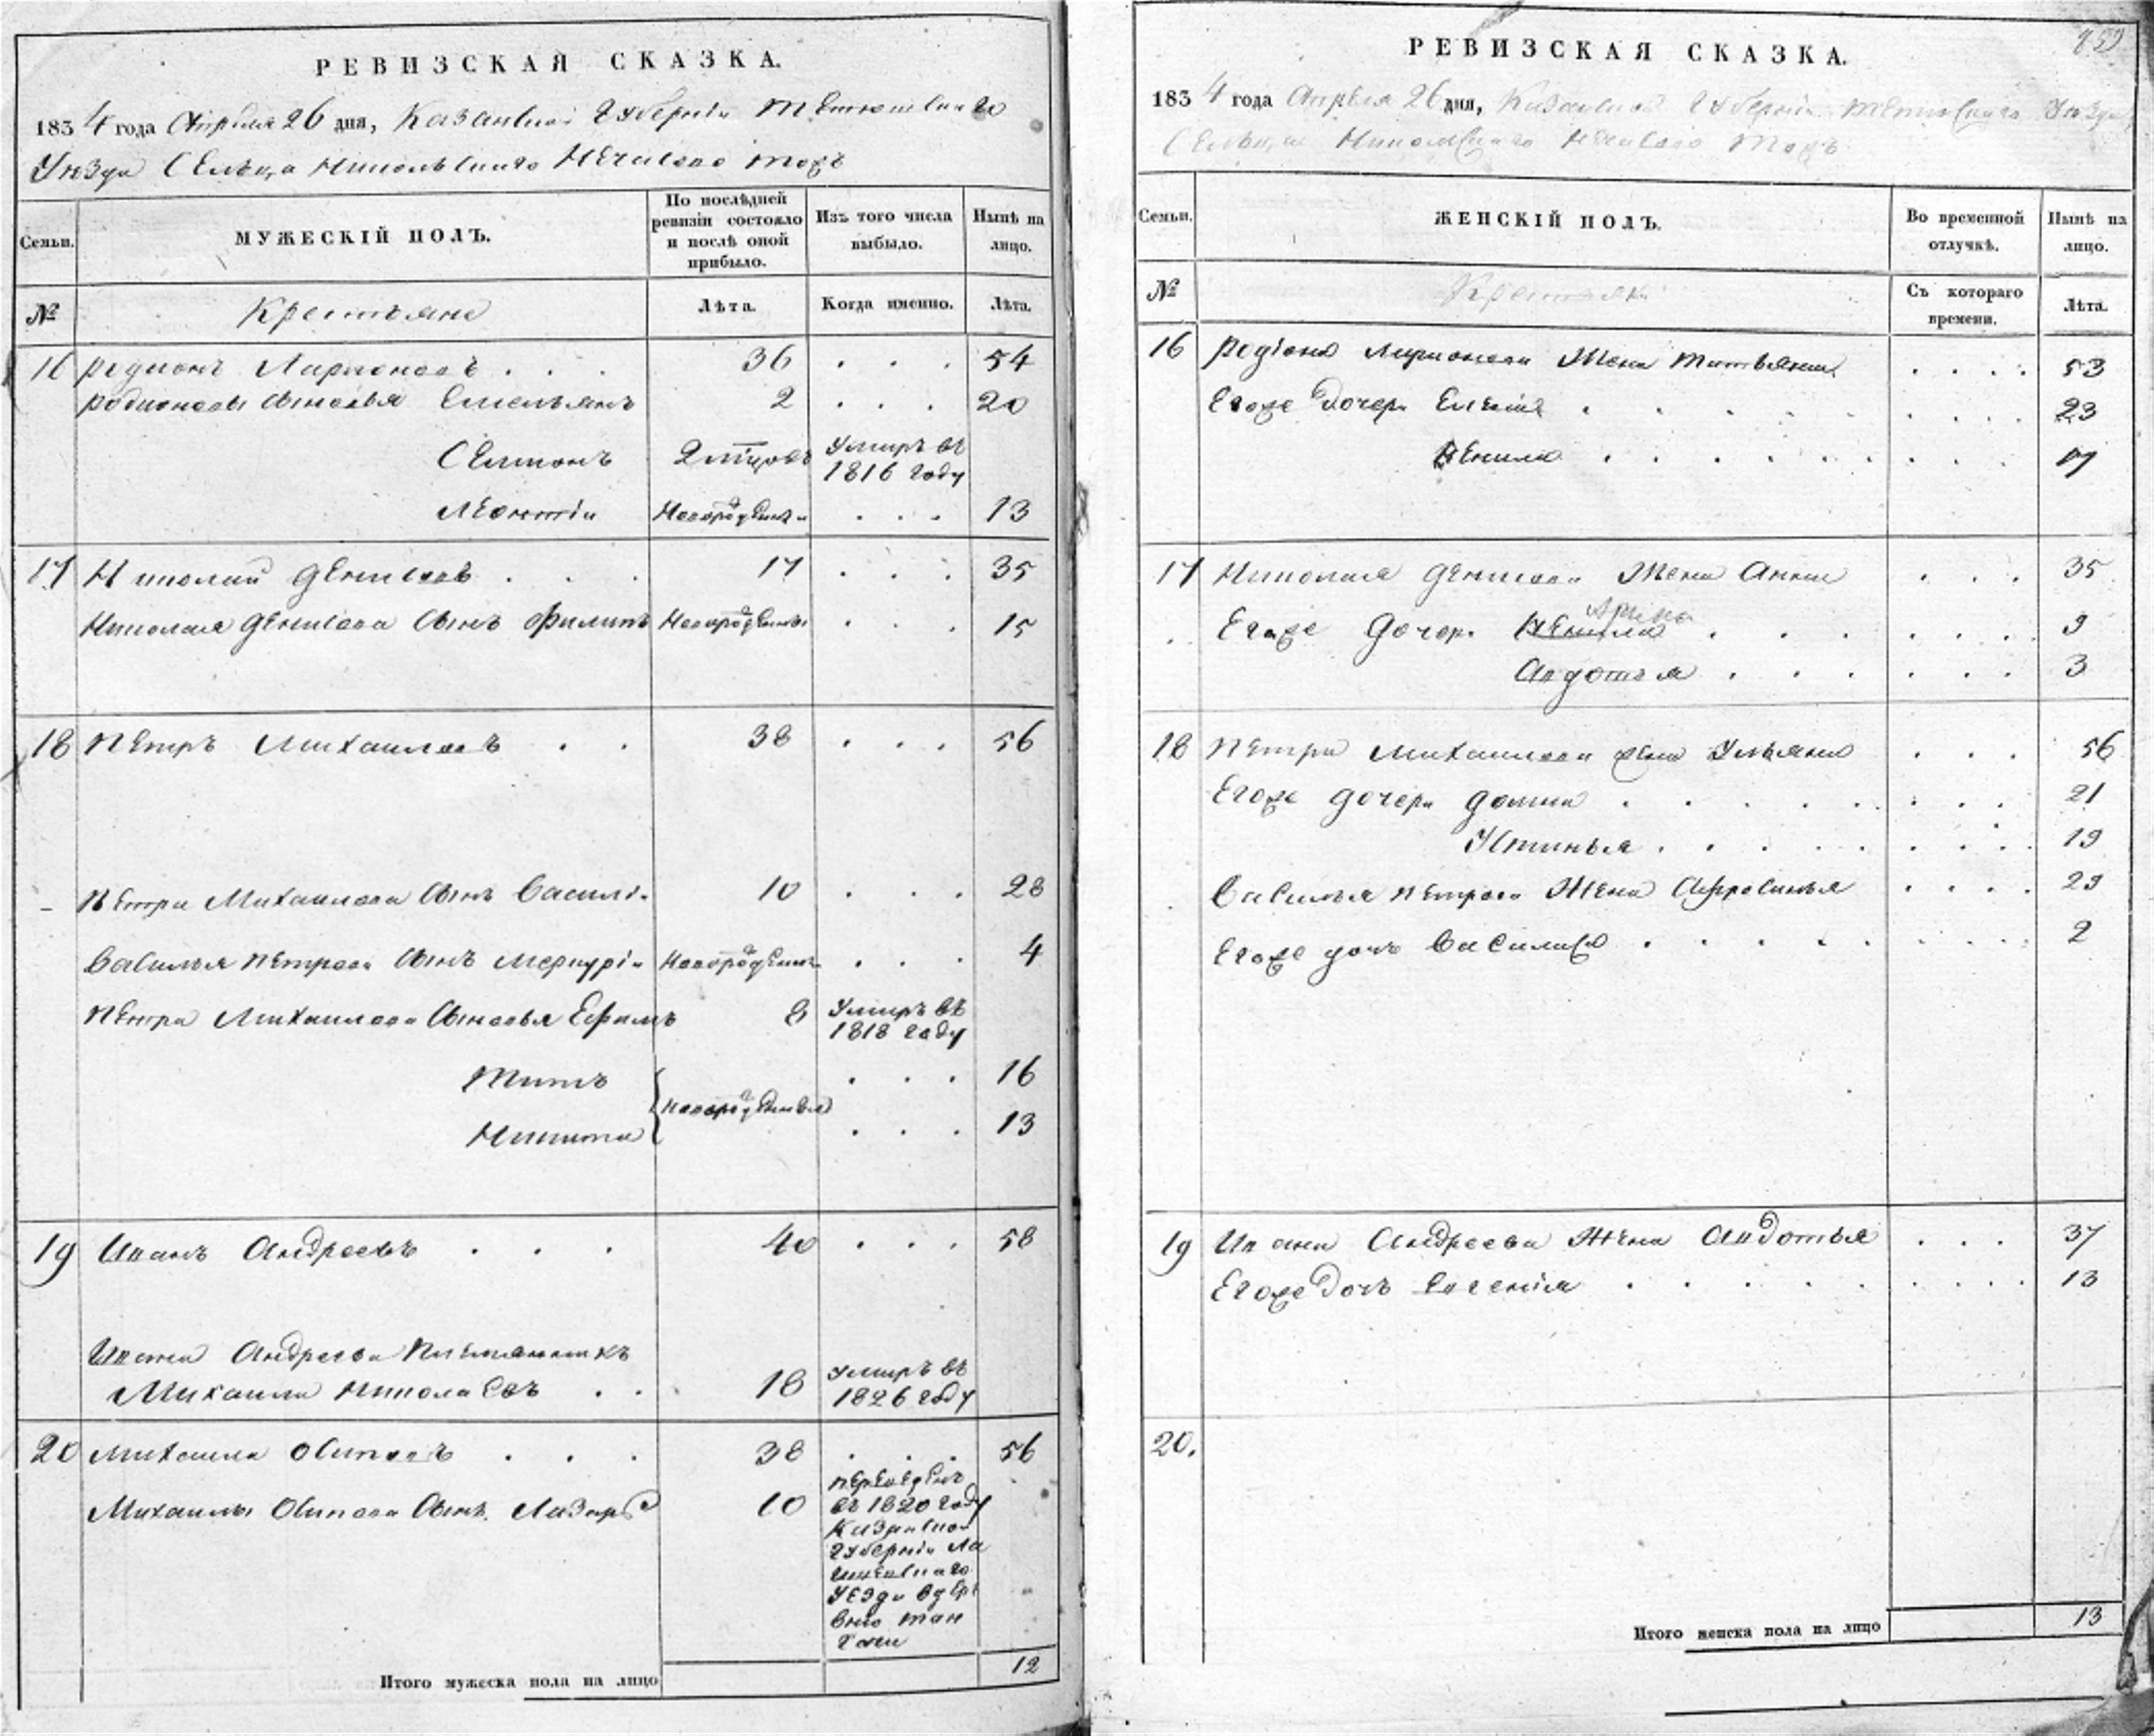 РЕВИЗСКАЯ СКАЗКА.
1834 года Апреля 26 дня, Казанской Губернии Тетюшскаго
Уезда Сельца Никольскаго тожъ
Семьи.
МУЖЕСКІЙ ПОЛЪ.
По послѣдней ревизіи состояло и послѣ оной прибыло.
Изъ того числа выбыло.
Нынѣ на лицо.
№
Крестьяне
Лѣта.
Когда именно.
Лѣта.
16 Родионъ Ларионовъ . . . 36 . . . 54
Родионовы сыновья Емельянъ 2 . . . 20
Семионъ умиръ въ 1816 году
Леонтіи Новорожденъ . . . 13
17 Николай Денисовъ . . . 17 . . . 35
Николая Денисова сынъ Филипъ Новорожденъ . . . 15
18 Петръ Михаиловъ . . 38 . . . 56
Петра Михаилова сынъ Василі 10 . . . 28
Василья Петрова сынъ Меркурі Новорожденъ . . . 4
Петра Михаилова сыновья Ефимъ 8 умиръ въ 1818 году
Титъ . . . 16
Новорожденныя
Никита . . . 13
19 Иванъ Андреевъ . . . 40 . . . 58
Ивана Андреева племянникъ
Михаила Николаевъ . . 18 умиръ въ 1826 году
20 Михаила Осиповъ . . . 38 . . . 56
Михаилы Осипова сынъ Лазарь 10 переведенъ
въ 1820 году
Казанской
Губерніи Ла
ишевскаго
уезда въ дере
вню Тан
гачи
Итого мужеска пола на лицо 12
859
РЕВИЗСКАЯ СКАЗКА.
1834 года Апреля 26 дня, Казанской Губерніи Тетюшскаго Уезда
Сельца Никольскаго тожъ
Семьи.
ЖЕНСКІЙ ПОЛЪ.
Во временной отлучкѣ.
Нынѣ на лицо.
№
Крестьяне
Съ котораго времени.
Лѣта.
16 Родіона Ларионова жена Татьяна . . . . 53
Егоже дочери Елена . . . . 23
Ненила . . . . 17
17 Николая Денисова жена Анна . . . 35
Арина
Егоже дочери Ненила . . . . 9
Авдотья . . . . 3
18 Петра Михаилова жена Ульяна . . . 56
Егоже дочери Домна . . . . 21
Устинья . . . . 19
Василья Петрова жена Афросинья . . . . 29
Егоже дочь Василиса . . . . 2
19 Ивана Андреева жена Авдотья . . . 37
Егоже дочь Евгенія . . . . 13
20.
Итого женска пола на лицо 13